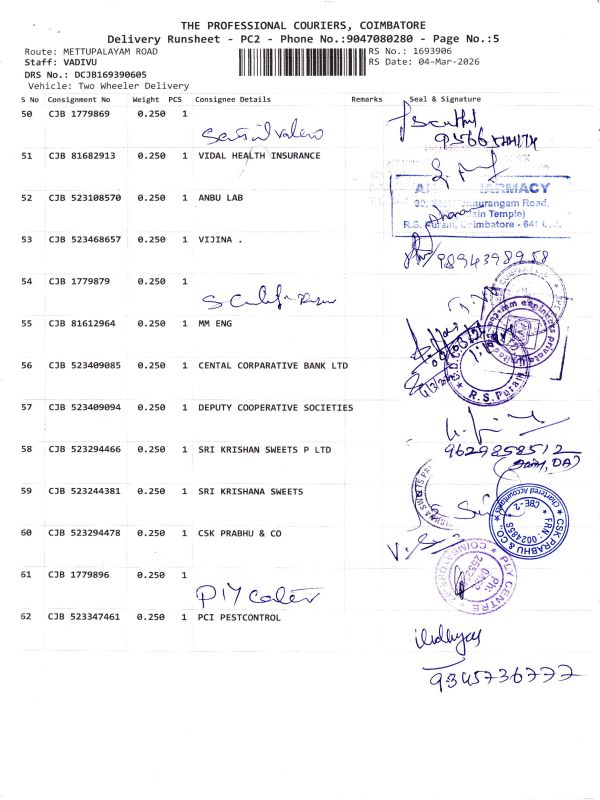 THE PROFESSIONAL COURIERS, COIMBATORE
Delivery Runsheet - PC2 - Phone No.:9047080280 - Page No.:5
Route: METTUPALAYAM ROAD
RS No.: 1693906
Staff: VADIVU
RS Date: 04-Mar-2026
DRS No.: DCJB169390605
Vehicle: Two Wheeler Delivery
S No Consignment No Weight PCS Consignee Details Remarks Seal & Signature
50 CJB 1779869 0.250 1
51 CJB 81682913 0.250 1 VIDAL HEALTH INSURANCE
52 CJB 523108570 0.250 1 ANBU LAB
PHARMACY
Road,
R.S. Puram, Coimbatore - 641
53 CJB 523468657 0.250 1 VIJINA .
9894398958
54 CJB 1779879 0.250 1
55 CJB 81612964 0.250 1 MM ENG
56 CJB 523409085 0.250 1 CENTAL CORPARATIVE BANK LTD
R.S.Puram
57 CJB 523409094 0.250 1 DEPUTY COOPERATIVE SOCIETIES
58 CJB 523294466 0.250 1 SRI KRISHAN SWEETS P LTD
9629858512
59 CJB 523244381 0.250 1 SRI KRISHANA SWEETS
60 CJB 523294478 0.250 1 CSK PRABHU & CO
CSK PRABHU & CO.
Chartered Accountants
CBE - 2
FRN: 002485S
61 CJB 1779896 0.250 1
PLY Center
PLY CENTRE
62 CJB 523347461 0.250 1 PCI PESTCONTROL
9345736777